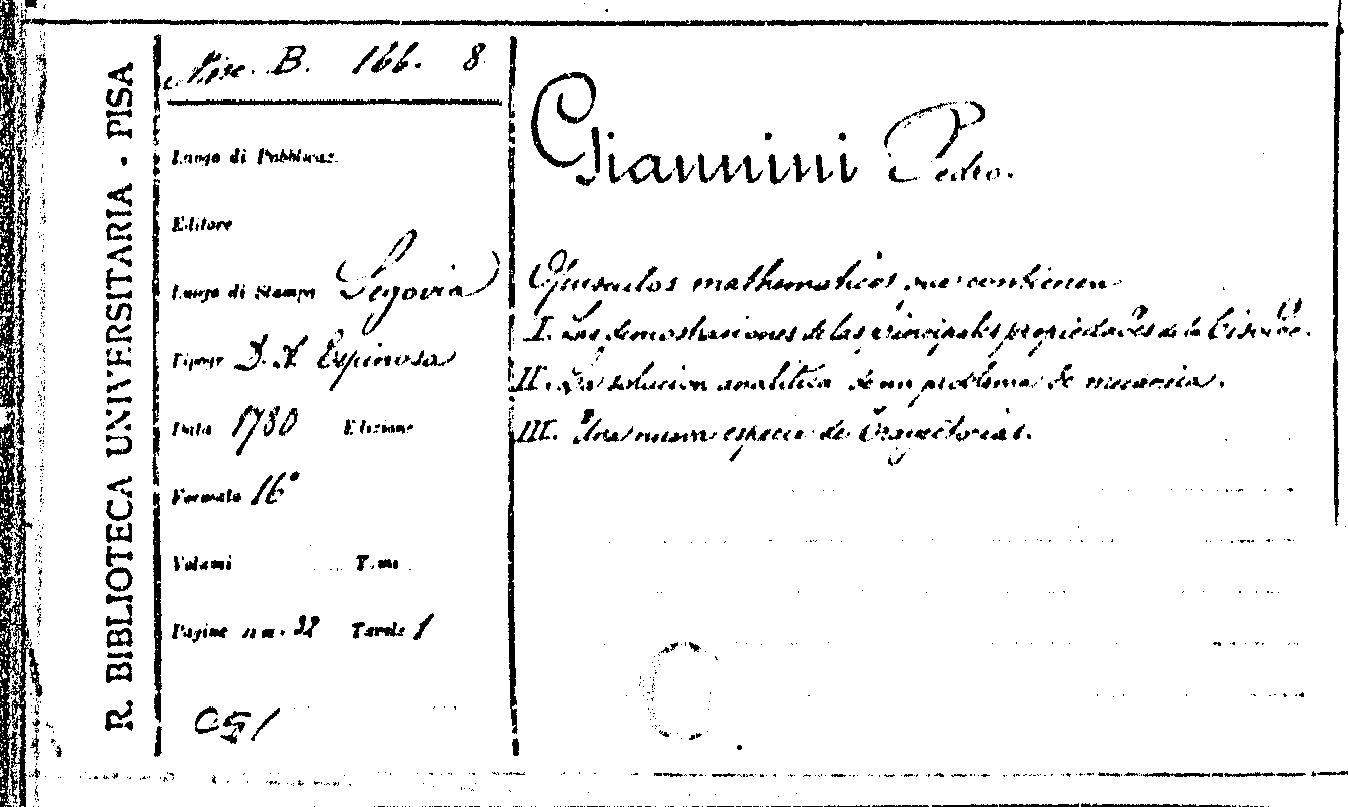 R. BIBLIOTECA UNIVERSITARIA - PISA
Misc. B. 166. 8
Luogo di Pubblicaz.
Editore
Luogo di Stampa Segovia
Tipogr. D. A. Espinosa
Data 1780 Edizione
Formato 16°
Volumi Tomi
Pagine num. 32 Tavole 1
Giannini Pedro.
Opusculos mathematicos, que contienen
I. Las demostraciones de las principales propiedades de la Cisoide.
II. La solucion analitica de un problema de mecanica.
III. Una nueva especie de trayectorias.